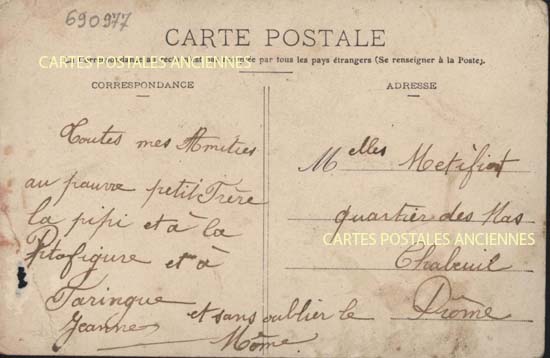 690977
CARTE POSTALE
CARTES POSTALES ANCIENNES
La Correspondance au recto n'est pas acceptée par tous les pays étrangers (Se renseigner à la Poste).
CORRESPONDANCE
Toutes mes Amitiés
au pauvre petit Frère
la pipi et à la
figure et à
Taringue
Jeanne et sans oublier le
Môme
ADRESSE
Melles Metifiot
quartier des Mas
CARTES POSTALES ANCIENNES
Chabeuil
Drôme